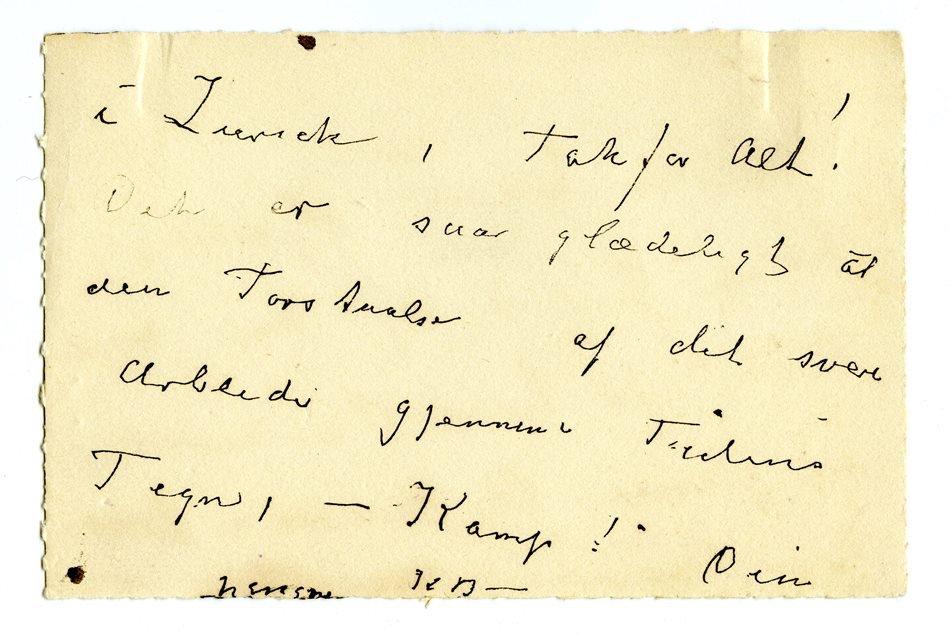 i Zurich, Tak for Alt!
Det er saa glædeligt at
den Forstaaelse af dit svere
Arbeide gjennem Tidens
Tegn, — Kamp! Din